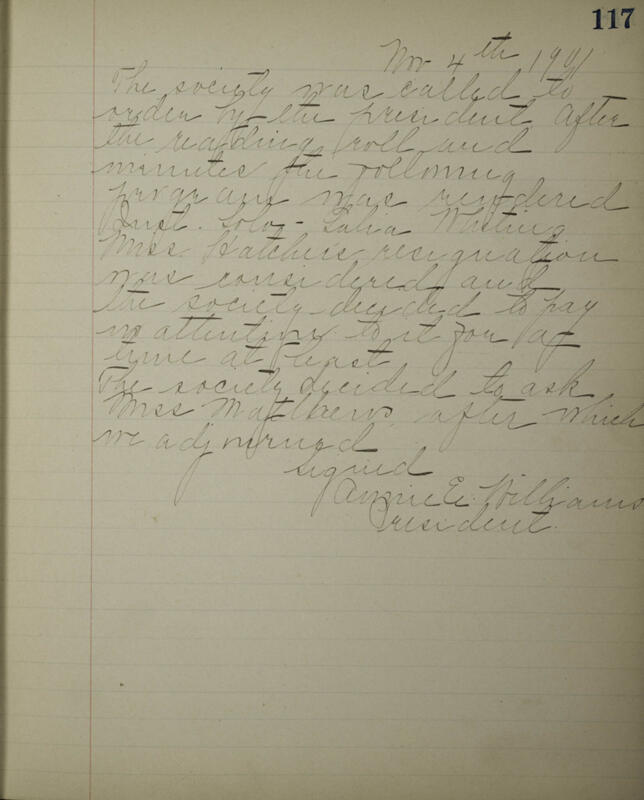 117
Nov 4th 1901
The society was called to
order by the president. After
the reading roll and
minutes the following
program was rendered
Inst. Solo - Whiting
Miss Hatcher's resignation
was considered and
the society decided to pay
no attention to it for a
time at least
The society decided to ask
Miss Matthews after which
we adjourned
Signed
Annie E. Williams
President.